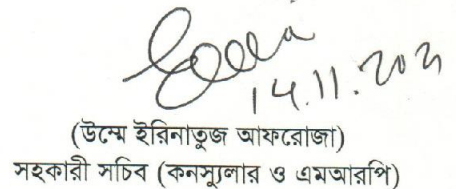 14.11.202
(উম্মে ইরিনাতুজ আফরোজা)
সহকারী সচিব (কনস্যুলার ও এমআরপি)